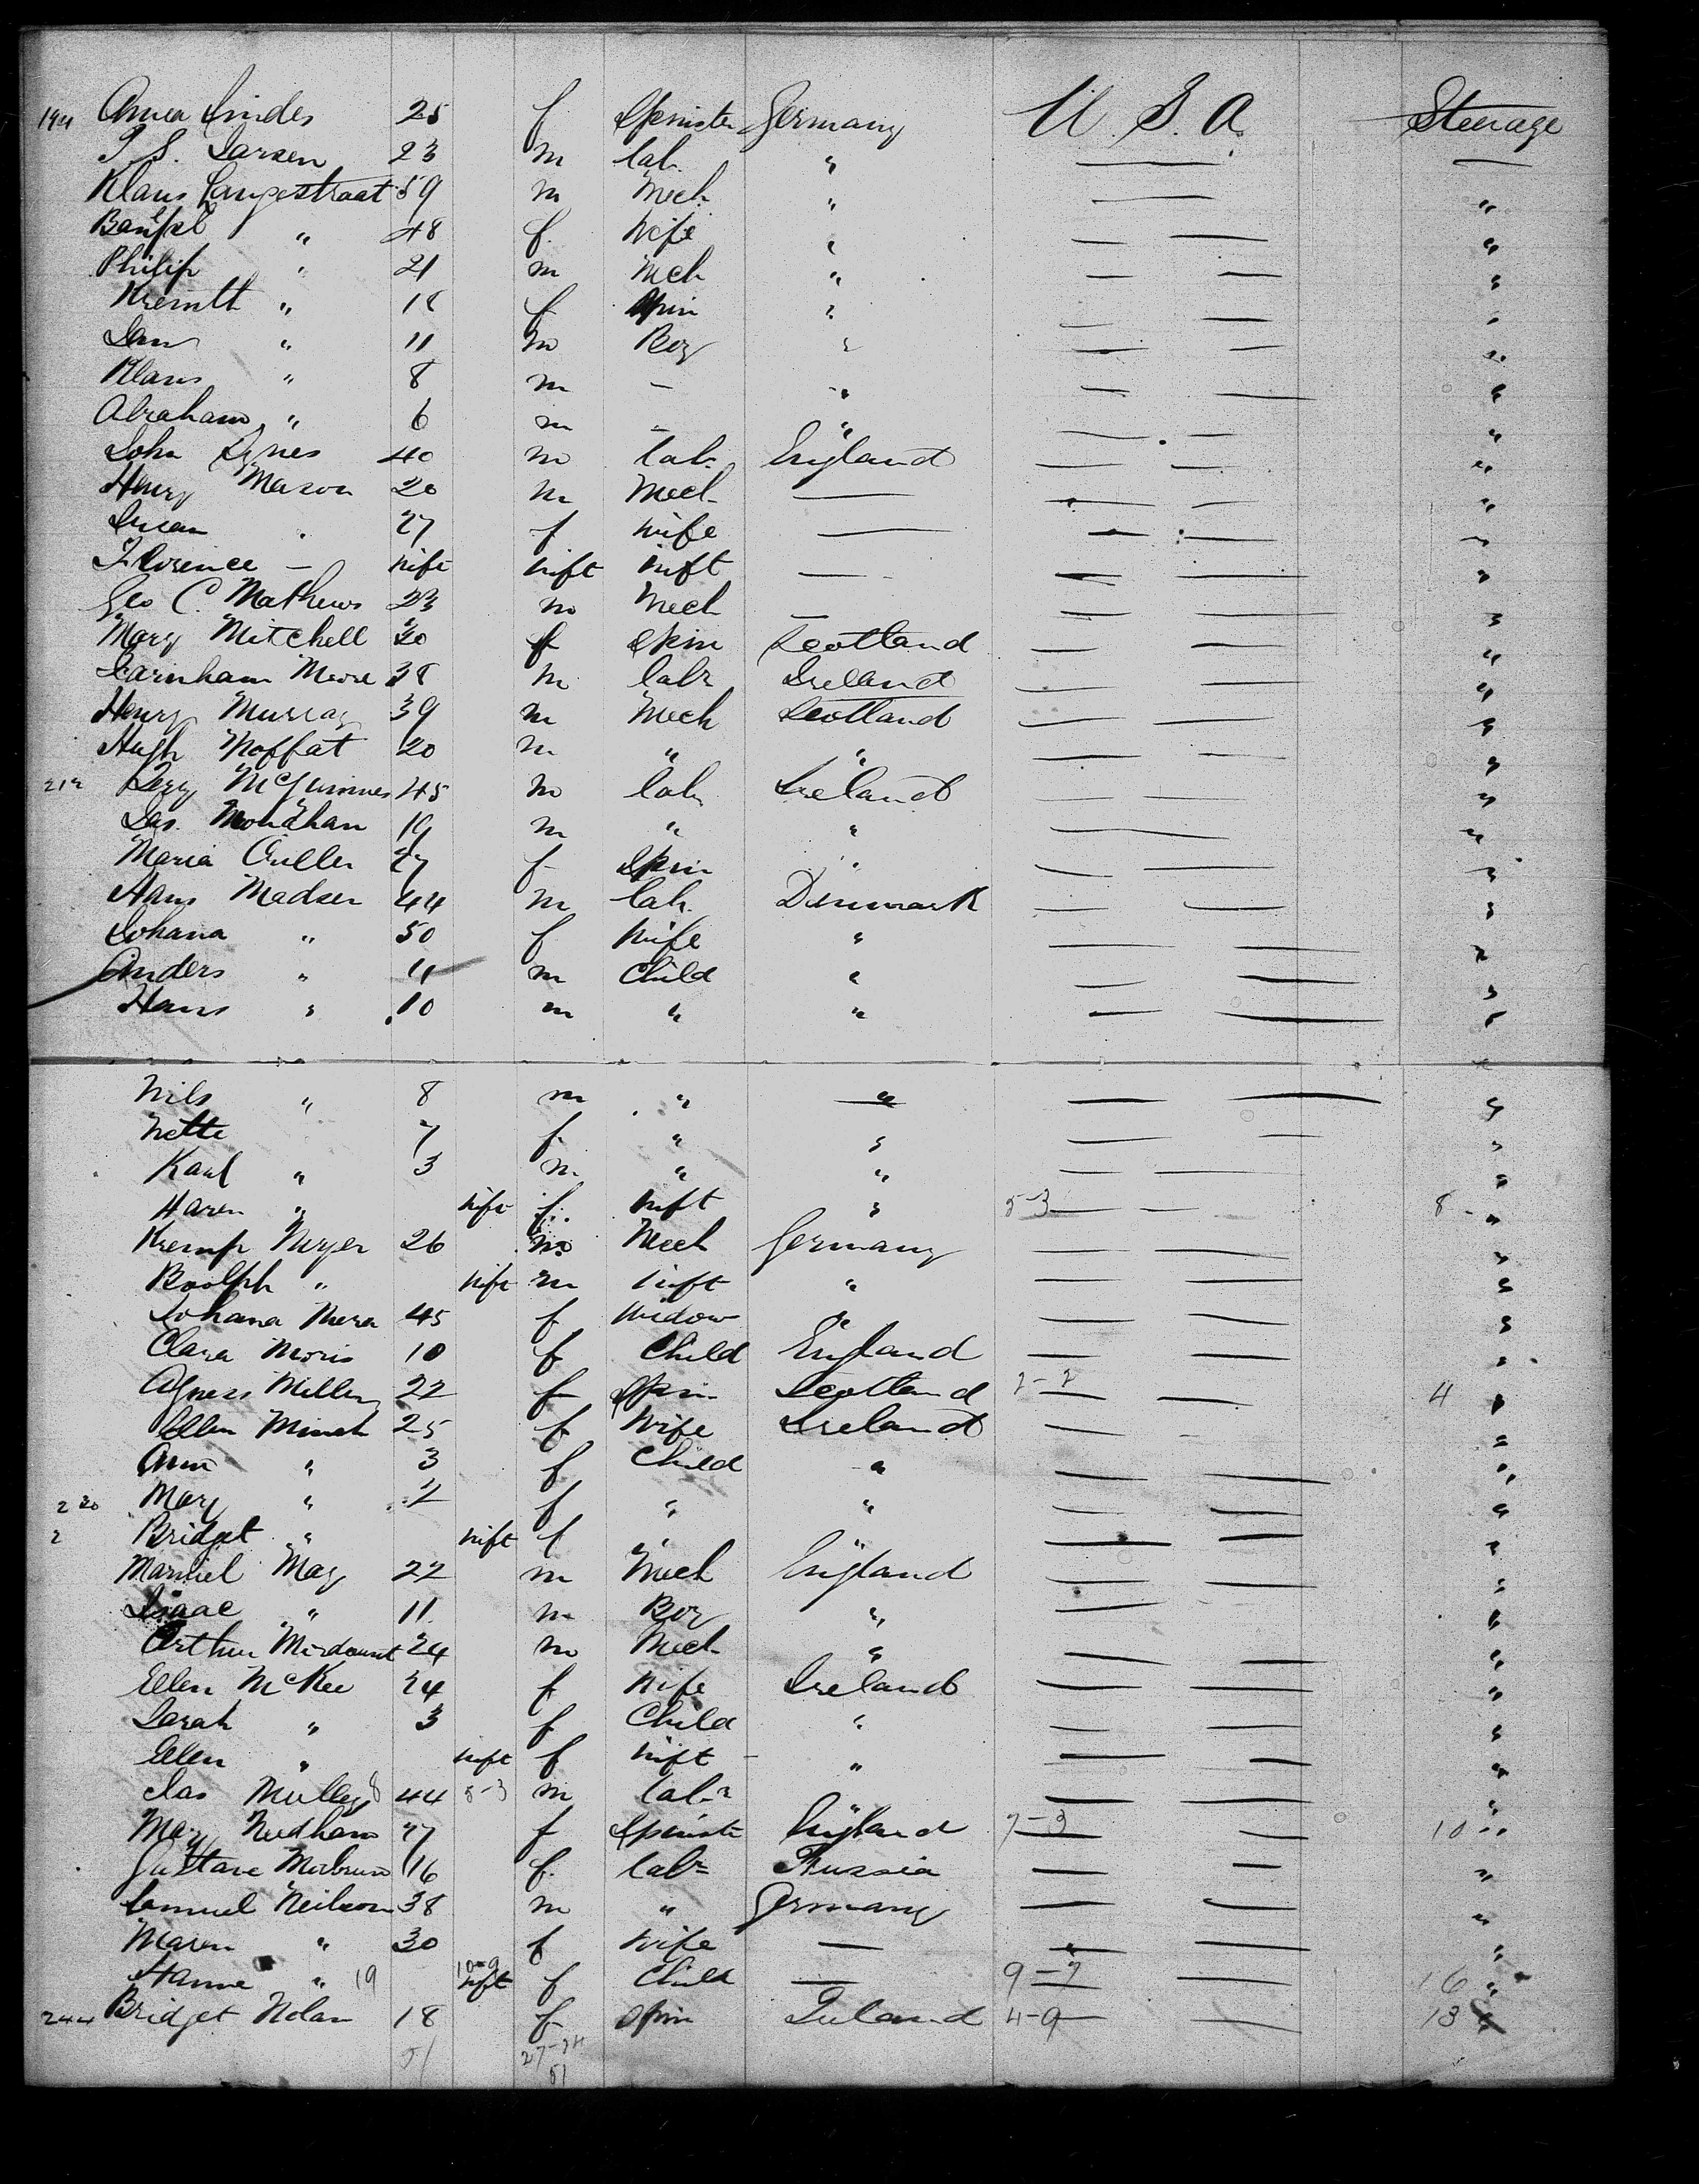 194 Anna Lindes 25 f Spinster Germany U. S. A. Steerage
P. S. Larsen 23 m lab " — —
Klaus Langestraat 59 m Mech " — "
" 48 f. Wife " — — "
Philip " 21 m Mch " — — "
" 18 f Spin " — — "
Jan " 11 m Boy " — — "
Klaus " 8 m — " — — "
Abraham " 6 m " " — — "
John 40 m lab England — — "
Henry Mason 20 m Mech — — — "
Susan " 27 f Wife — — — "
Florence — inft inft inft — — — "
Geo C. Mathews 23 m Mech — — — "
Mary Mitchell 20 f Spin Scotland — — "
Moore 38 m labr Ireland — — "
Henry Murray 39 m Mech Scotland — — "
Hugh Moffat 20 m " " — — "
McGuinnes 45 m lab Ireland — — "
Jas. Monahan 19 m " " — "
Maria 27 f Spin " — — "
Hans Madsen 44 m lab. Denmark — — "
Johana " 50 f Wife " — — "
Anders " 11 m Child " — — "
Hans " 10 m " " — — "
Nils " 8 m " " — — "
Nette 7 f " " — — "
Karl " 3 m " " — — "
Karen " inft f. inft " 5-3 — — 8 "
Kremp Meyer 26 m Mech Germany — — "
" inft m inft " — — "
Johana 45 f Widow " — — "
Clara Moris 10 f Child England — — "
Agness 22 f Spin Scotland — — 4 "
Ellen 25 f Wife Ireland — "
Ann " 3 f Child " — — "
230 Mary " 2 f " " — — "
2 Bridget " inft f " — — "
May 22 m Mech England — — "
Isaac " 11 m Boy " — "
Arthur Mordaunt 24 m Mech " — — "
Ellen McKee 24 f Wife Ireland — — "
Sarah " 3 f Child " — — "
Ellen " inft f inft " — — "
Jas 8 44 5-3 m labr — — "
Mary Needham 27 f Spinster England 7-3 — 10 "
Gustave 16 f. labr Russia — — "
Samuel Neilson 38 m " Germany — — "
Maren " 30 f Wife — — — "
Hanne " 19 10-9 inft f Child — 9-7 — 16 "
244 Bridget Nolan 18 f Spin Ireland 4-9 — 13 "
51 27-24
51